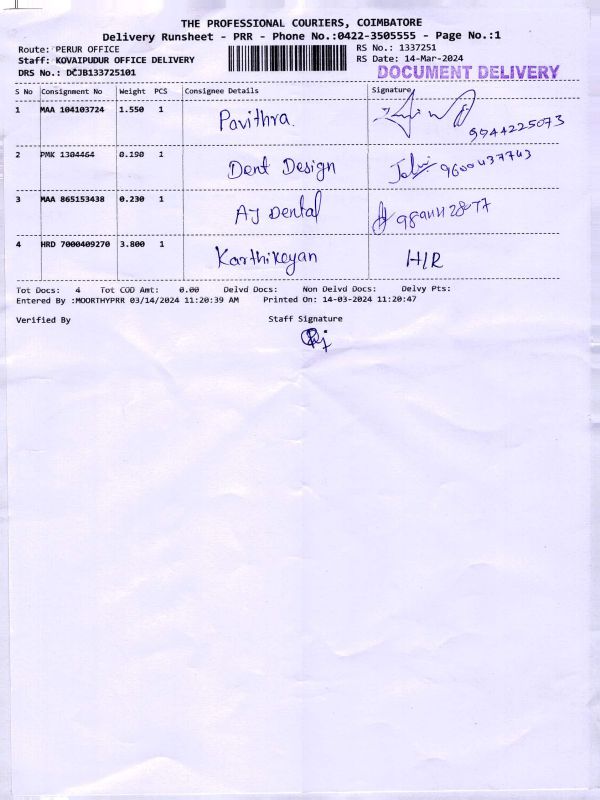 THE PROFESSIONAL COURIERS, COIMBATORE
Delivery Runsheet - PRR - Phone No.:0422-3505555 - Page No.:1
Route: PERUR OFFICE RS No.: 1337251
Staff: KOVAIPUDUR OFFICE DELIVERY RS Date: 14-Mar-2024
DRS No.: DCJB133725101 DOCUMENT DELIVERY
S No Consignment No Weight PCS Consignee Details Signature
1 MAA 104103724 1.550 1 Pavithra.
9944225073
2 PMK 1304464 0.190 1 Dent Design 9600437743
3 MAA 865153438 0.230 1 AJ Dental
4 HRD 7000409270 3.800 1 Karthikeyan H/R
Tot Docs: 4 Tot COD Amt: 0.00 Delvd Docs: Non Delvd Docs: Delvy Pts:
Entered By :MOORTHYPRR 03/14/2024 11:20:39 AM Printed On: 14-03-2024 11:20:47
Verified By Staff Signature